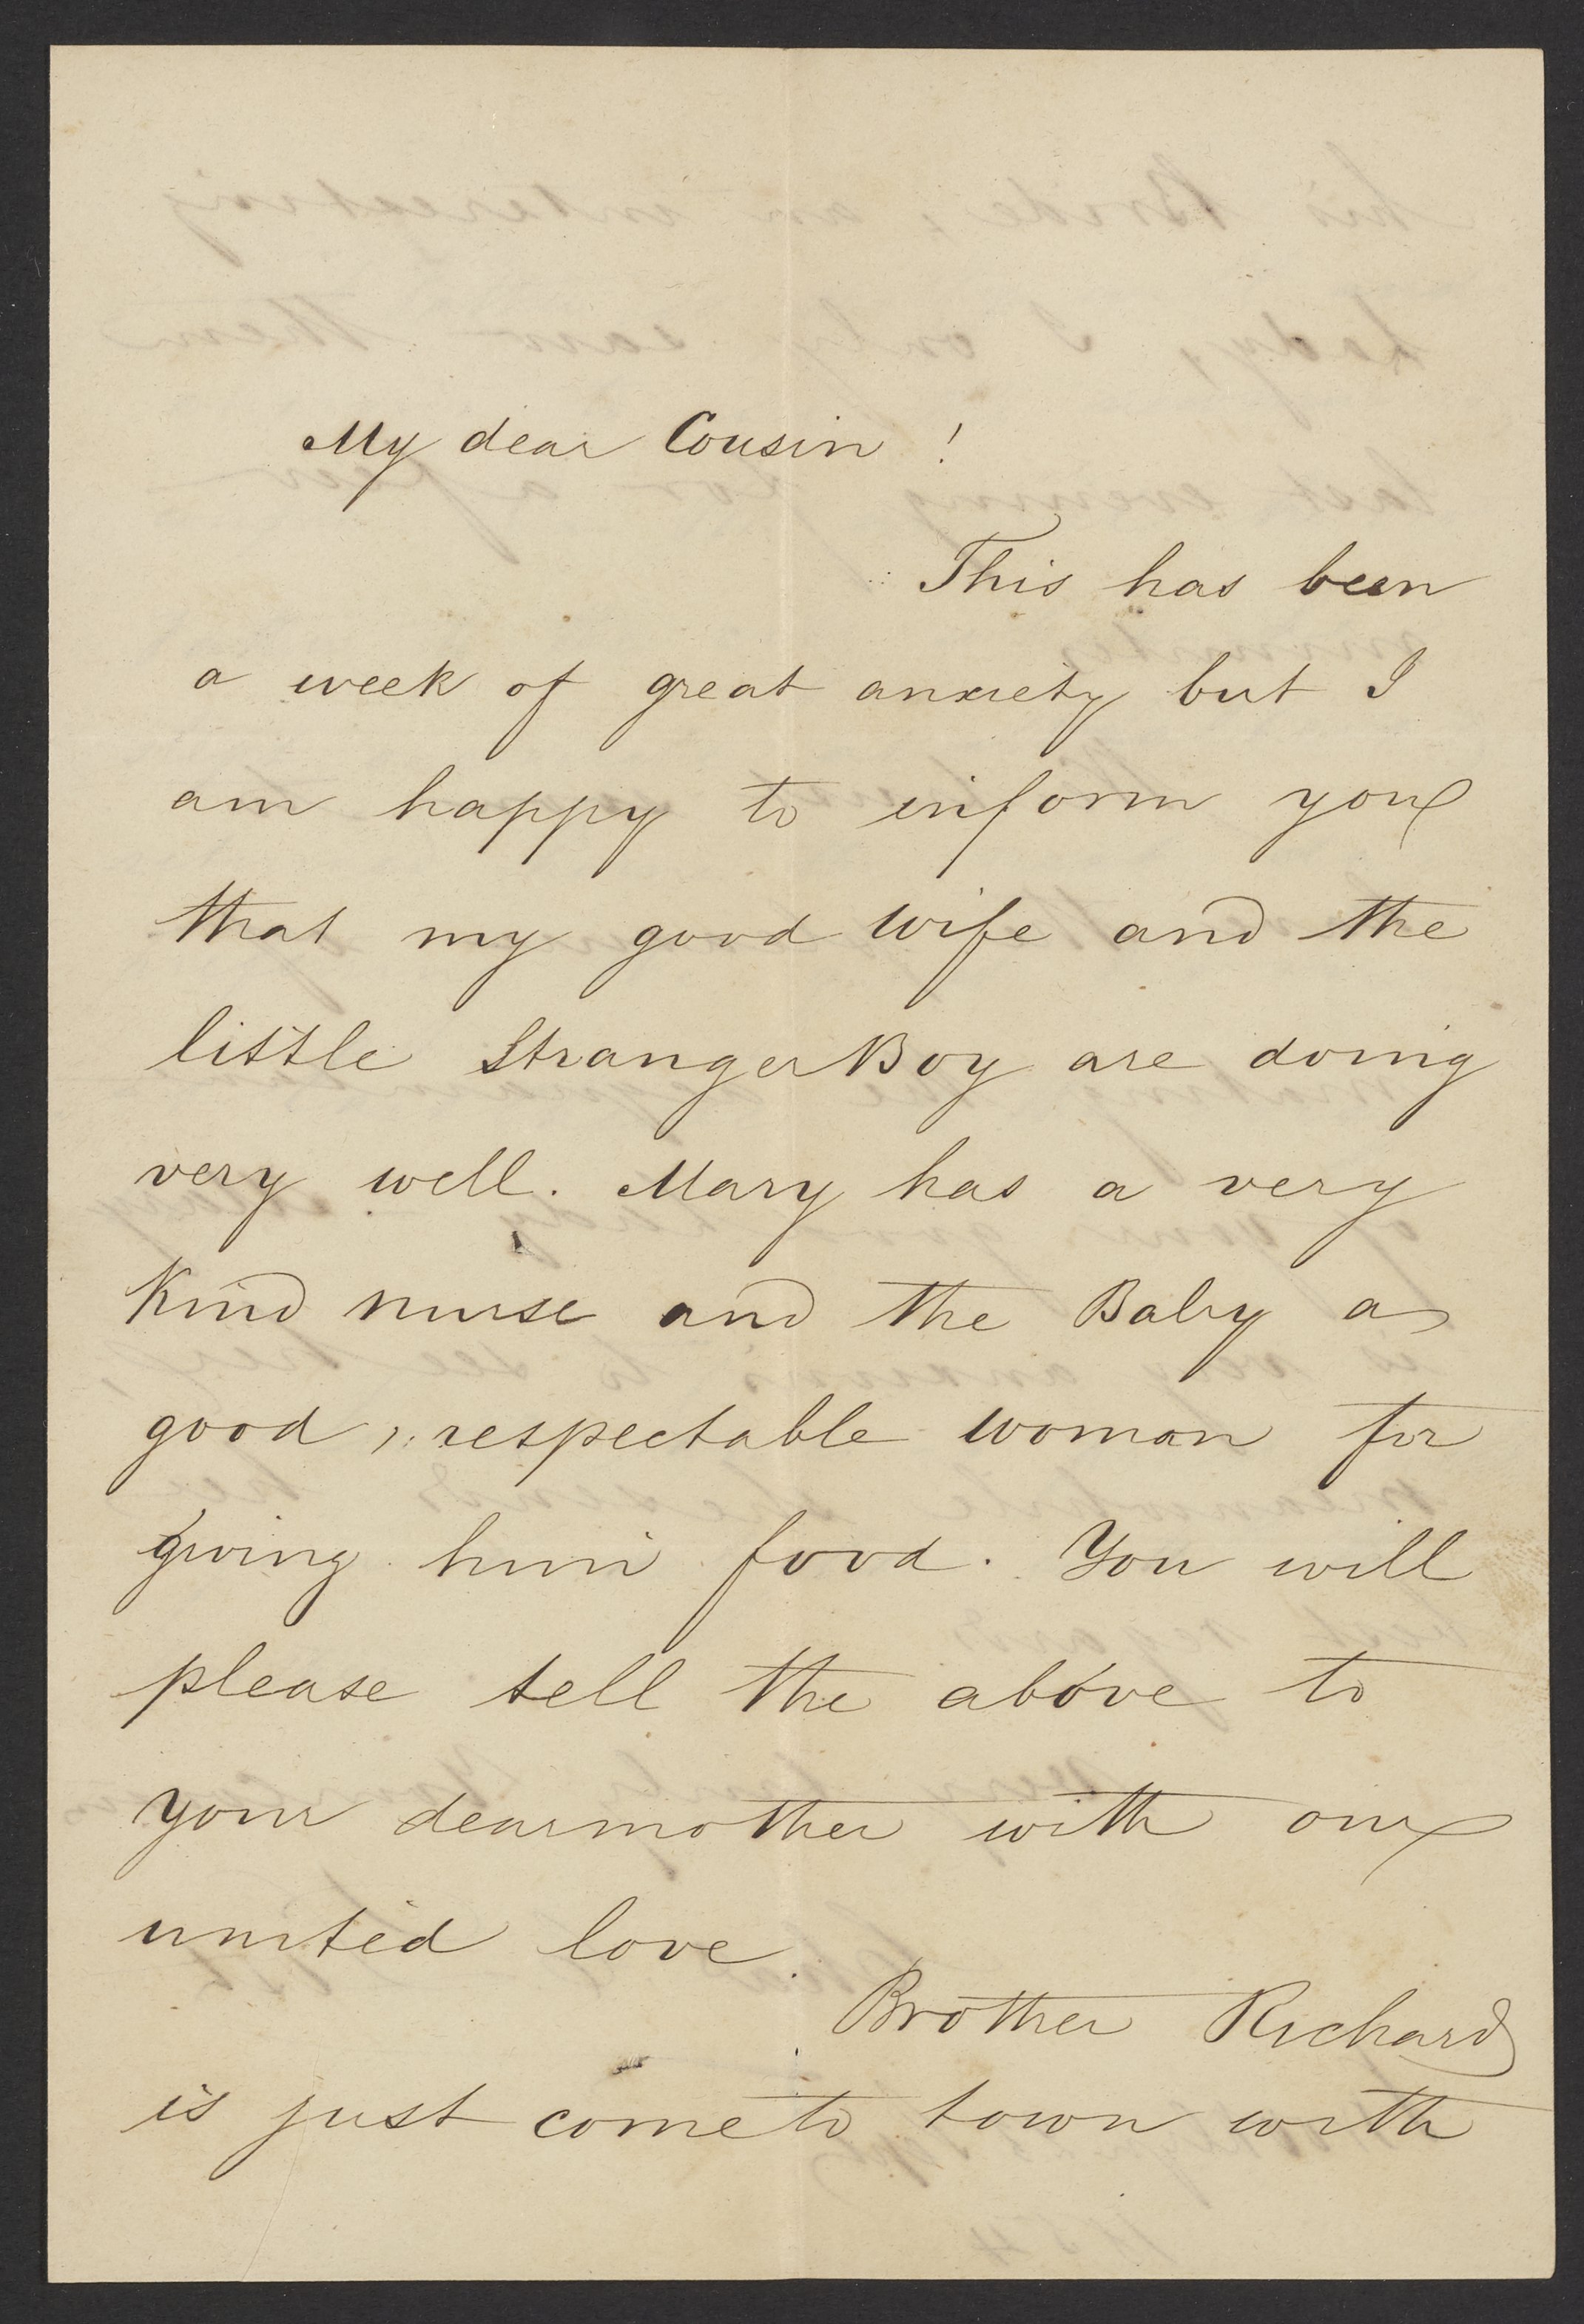 My dear Cousin !
This has been
a week of great anxiety but I
am happy to inform you
that my good wife and the
little Stranger Boy are doing
very well. Mary has a very
Kind nurse and the Baby a
good, respectable woman for
giving him food. You will
please tell the above to
your dear mother with our
united love.
Brother Richard
is just come to town with